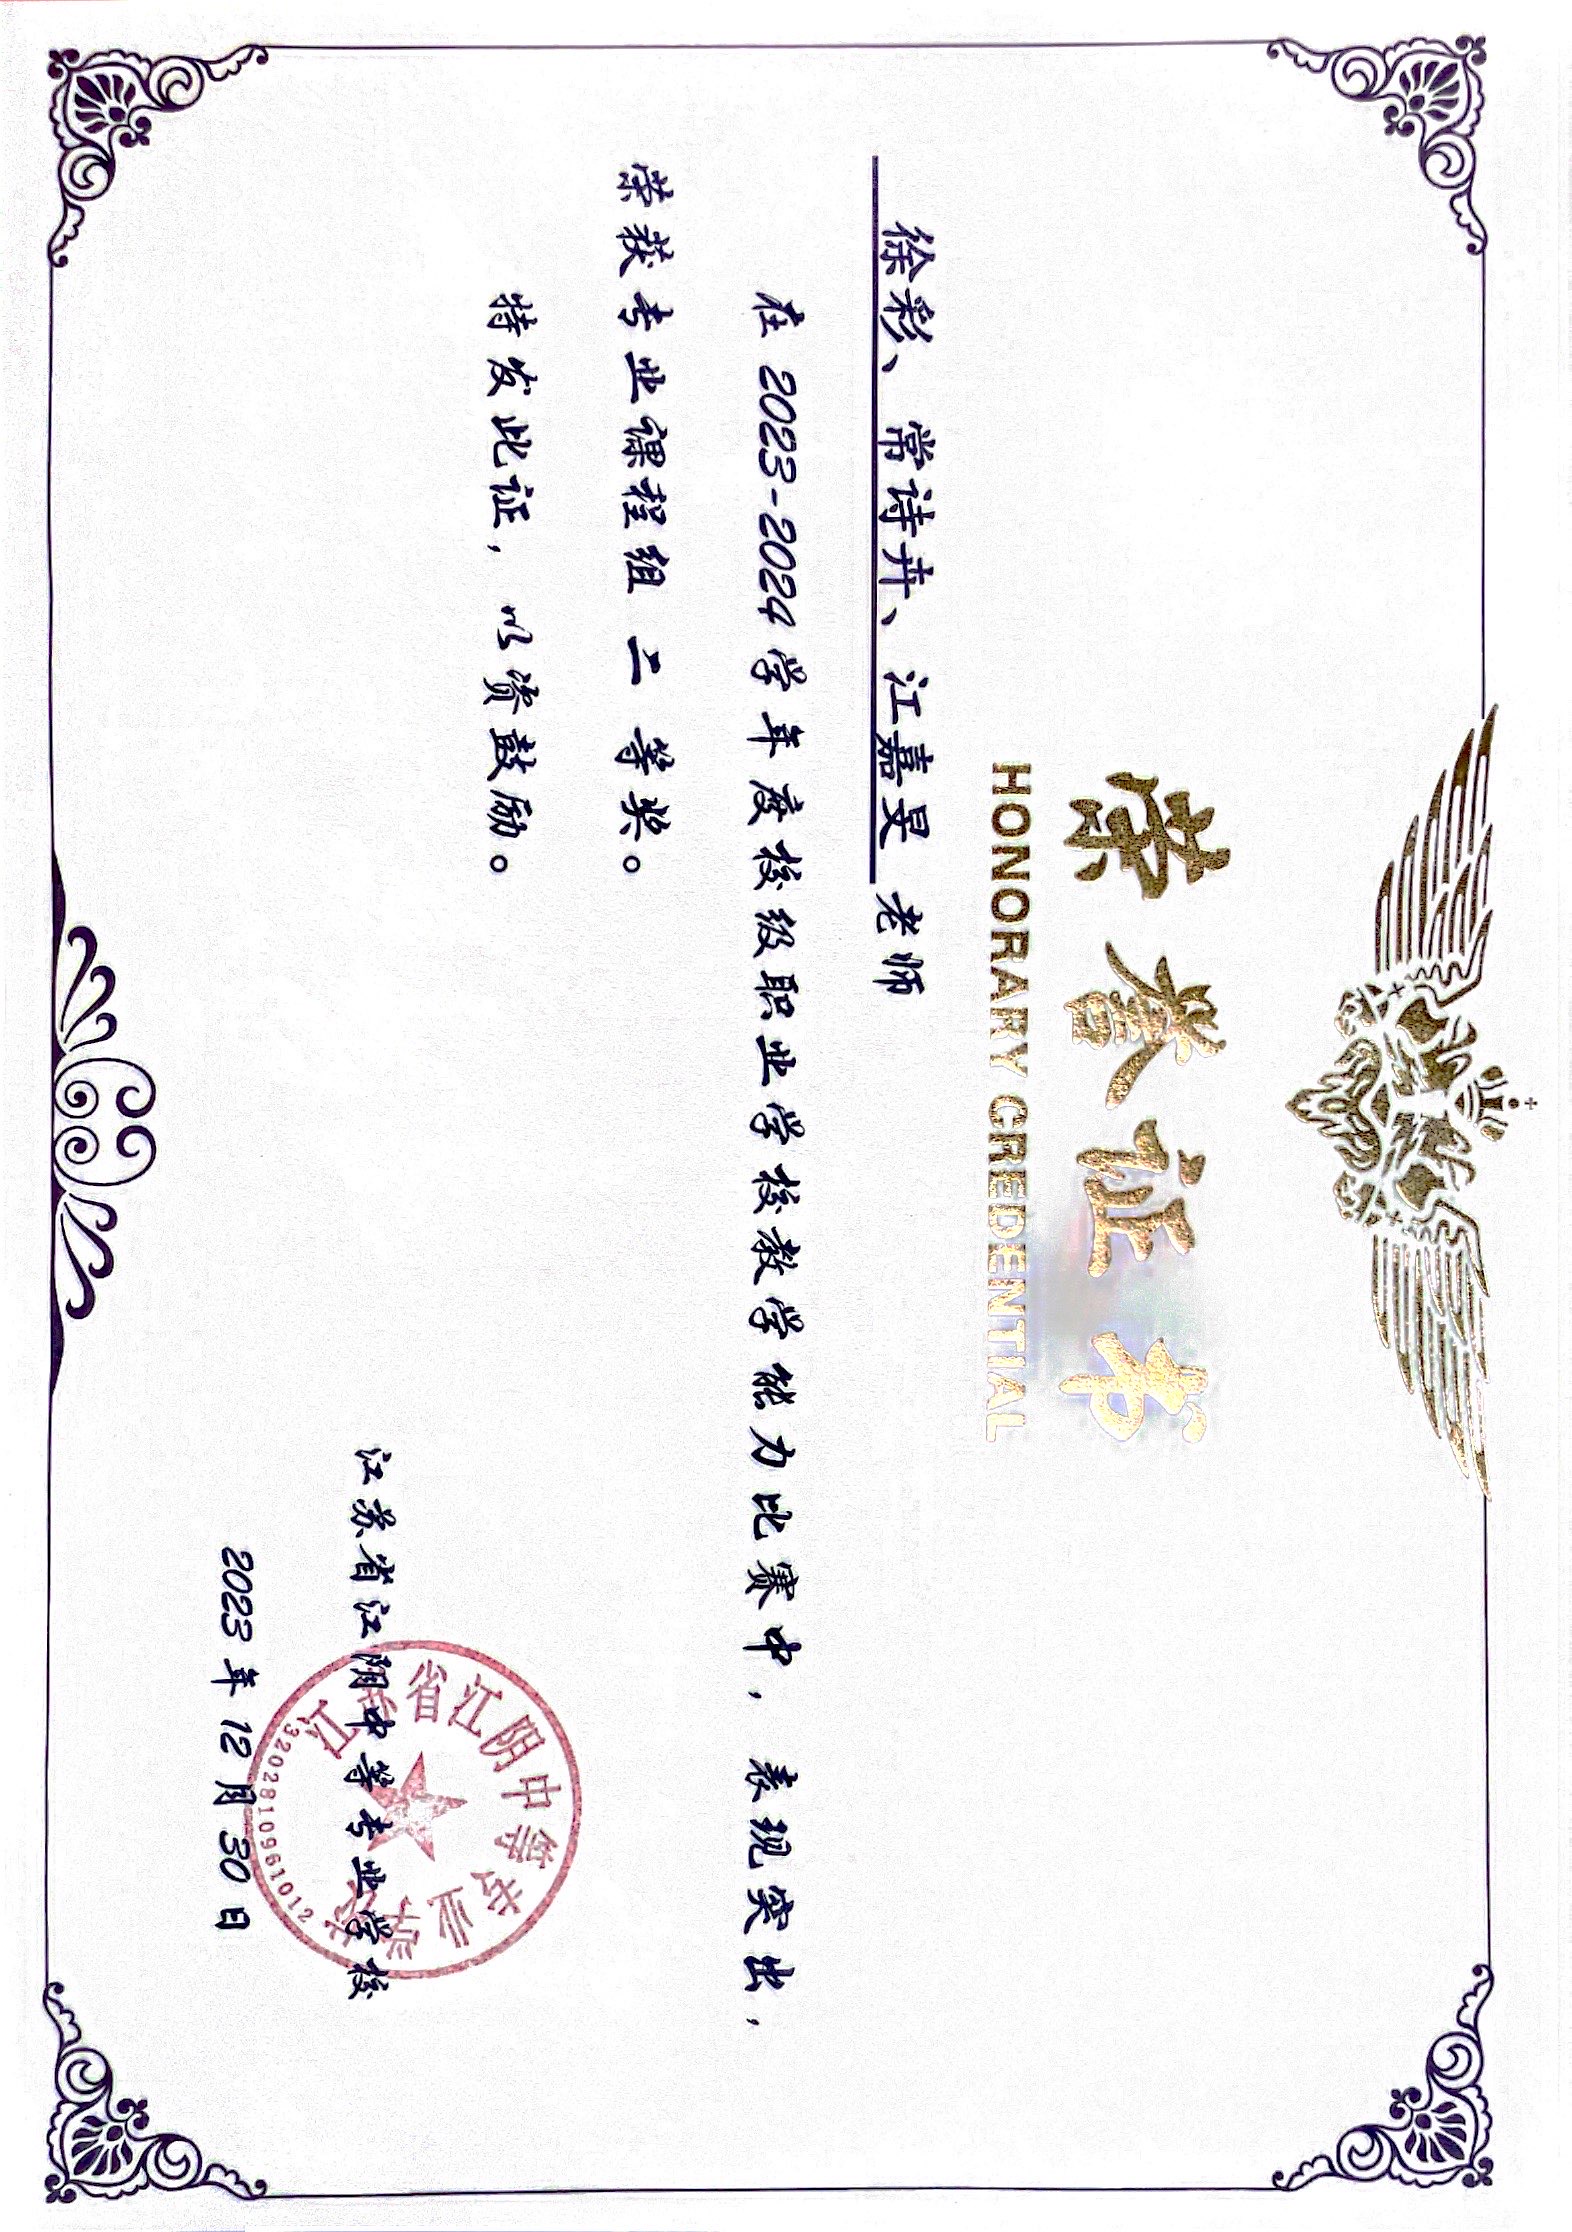 荣誉证书
HONORARY CREDENTIAL
徐彩、常诗卉、江嘉旻 老师
在 2023-2024 学年度校级职业学校教学能力比赛中，表现突出，
荣获专业课程组 二 等奖。
特发此证，以资鼓励。
江苏省江阴中等专业学校
2023 年 12 月 30 日
江苏省江阴中等专业学校
3202810961012